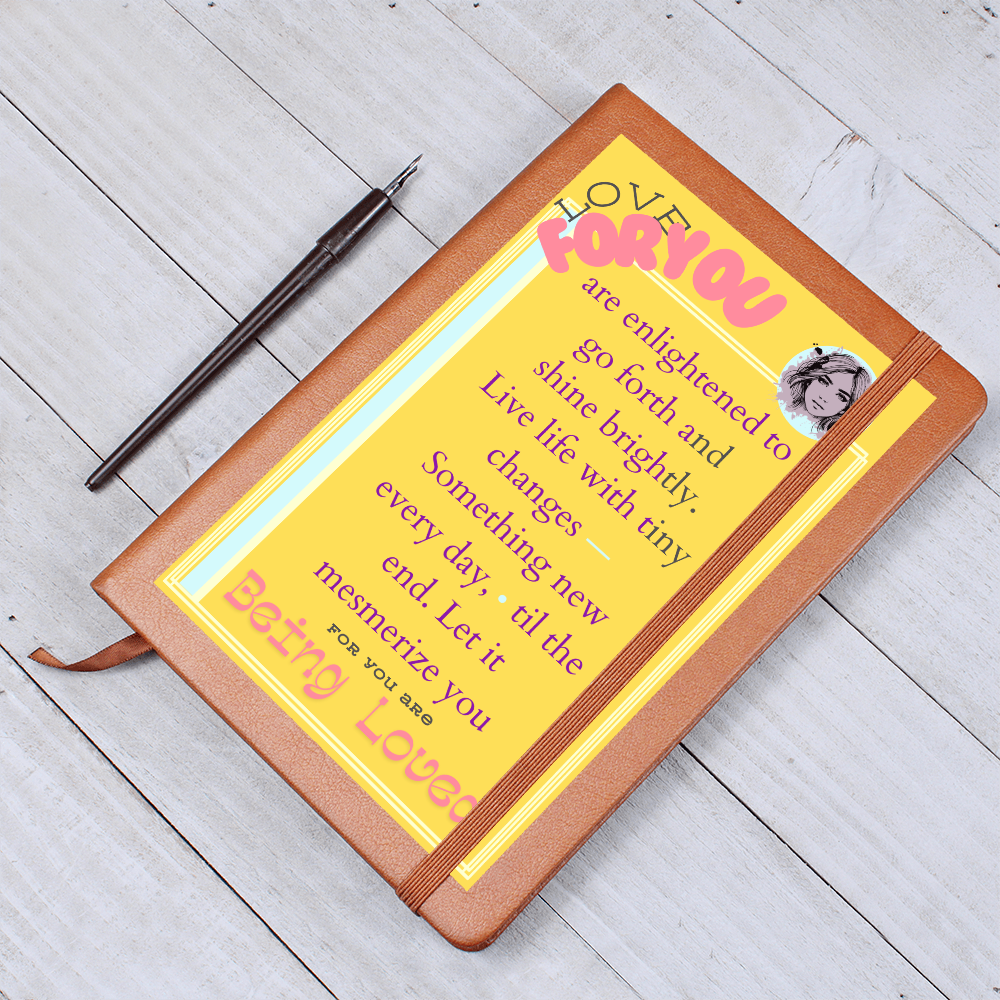 LOVE
FOR YOU
are enlightened to
go forth and
shine brightly.
Live life with tiny
changes —
Something new
every day, • til the
end. Let it
mesmerize you
FOR YOU ARE
Being Loved